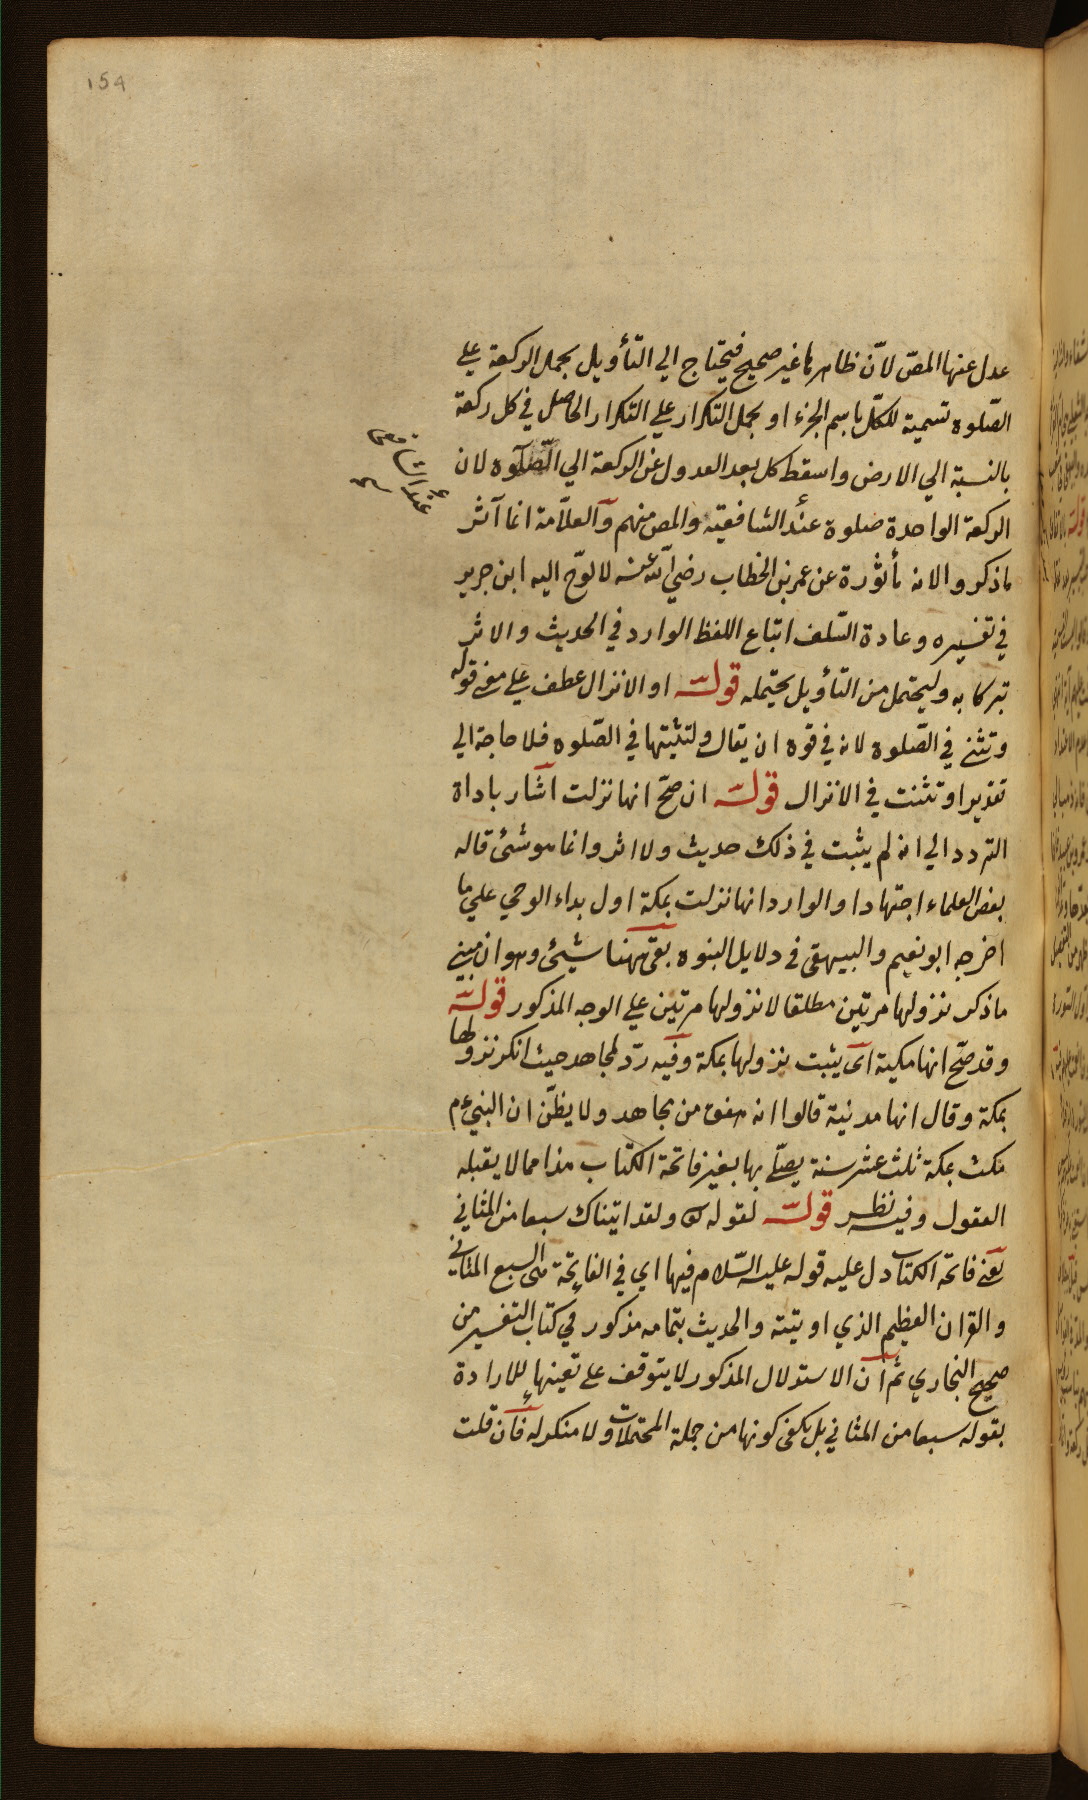 154
عدل عنها المص لانّ ظاهرها غير صحيح فيحتاج الي التأويل بحمل الركعة علي
الصّلوه تسمية للكلّ باسم الجزء او بحمل التكرار علي التكرار الحاصل في كل ركعة
بالنسبة الي الارض واسقط كل بعد العدول عن الركعة الي الصّلوه لان
الركعة الواحدة صلوة عند الشافعيّه والمص منهم والعلاّمة انما آثر
ماذكر والانه مأثورة عن عمر بن الخطاب رضي الله عنه لالوّح اليه ابن جرير
في تفسيره وعادة السّلف اتباع اللفظ الوارد في الحديث والاثر
تبركا به وليحتمل من التأويل يحتمله قوله او الانزال عطف علي معني قوله
وتثني في الصّلوه لانه في قوة ان يقال ولتثنيتها في الصّلوه فلا حاجة الي
تقدير او تثنت في الانزال قوله ان صحّ انها نزلت اشار باداة
التردد الي انه لم يثبت في ذلك حديث ولا اثر وانما هو شئ قاله
بعض العلماء اجتهادا والوارد انها نزلت بمكة اول بداء الوحي علي ما
اخرجه ابو نعيم والبيهقي في دلايل النبوه بقي ههنا شيئ وهو ان مبني
ماذكر نزولها مرتين مطلقا لا نزولها مرتين علي الوجه المذكور قوله
وقد صحّ انها مكية اي يثبت نزولها بمكة وفيه ردّ لمجاهد حيث انكر نزولها
بمكة وقال انها مدنية قالوا انه هفوة من مجاهد ولا يظنّ ان النبي عم
مكث بمكة ثلث عشر سنة يصلّي بها بغير فاتحة الكتاب هذا مما لا يقبله
العقول وفيه نظر قوله لقوله تع ولقد اتيناك سبعا من المثاني
يعني فاتحة الكتاب دل عليه قوله عليه السّلام فيها اي في الفاتحة هي السبع المثاني
والقران العظيم الذي اوتيته والحديث بتمامه مذكور في كتاب التفسير من
صحيح البخاري ثم ان الاستدلال المذكور لا يتوقف علي تعينها للارادة
بقوله سبعا من المثاني بل يكفي كونها من جملة المحتملات ولا منكر له فان قلت
عند الشافعي